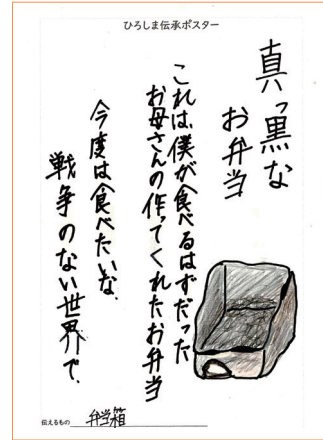 ひろしま伝承ポスター
真っ黒な
お弁当
これは、僕が食べるはずだった
お母さんの作ってくれたお弁当
今度は食べたいな。
戦争のない世界で。
伝えるもの 弁当箱